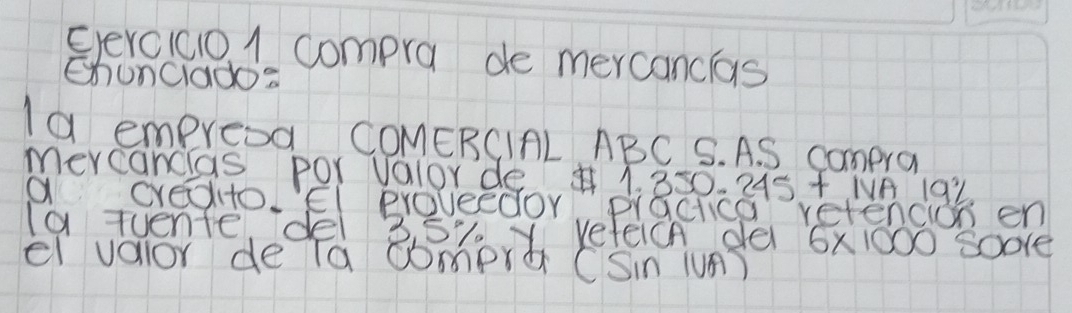 Ejercicio 1 compra de mercancías
Enunciado:
la empresa COMERCIAL ABC S.A.S compra
mercancias por valor de $ 1.350.245 + IVA 19%
a credito. El proveedor practica retención en
la fuente del 3,5% y reteICA del 6x1000 sobre
el valor de la compra (sin IVA)